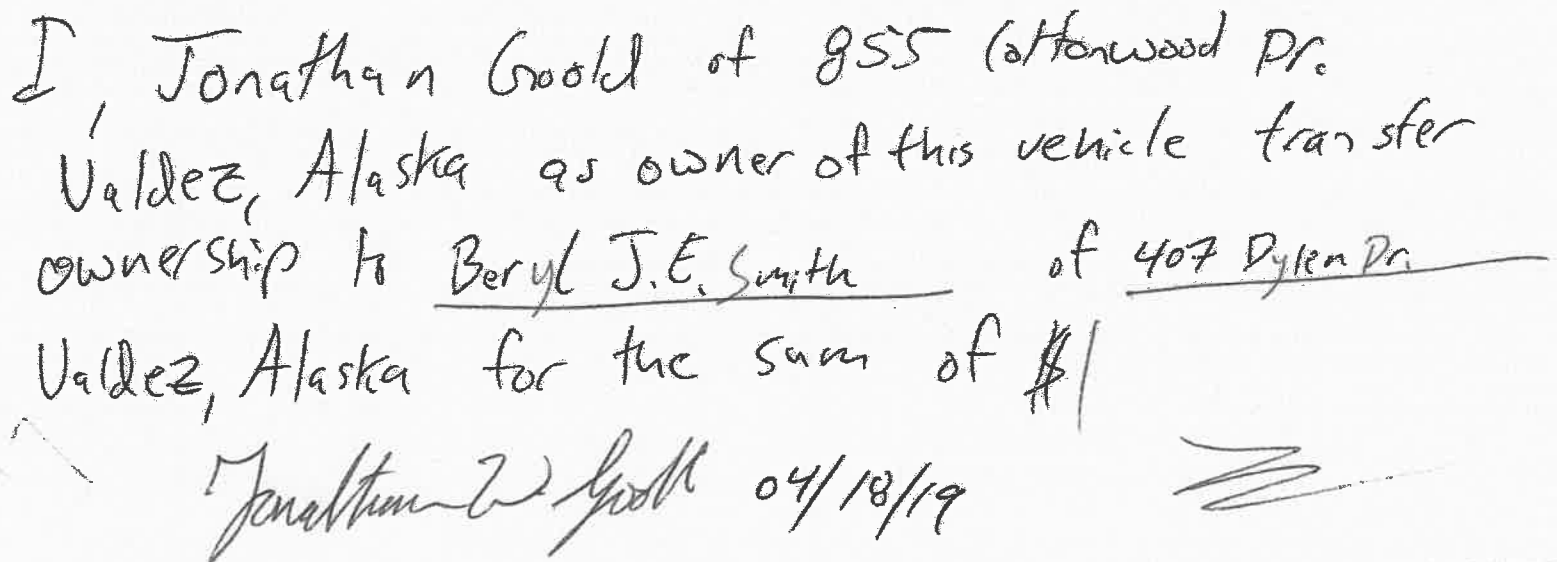 I, Jonathan Goold of 855 Cottonwood Dr.
Valdez, Alaska as owner of this vehicle transfer
ownership to Beryl J.E. Smith of 407 Dylen Dr.
Valdez, Alaska for the sum of $1
Jonathan W. Goold 04/18/19